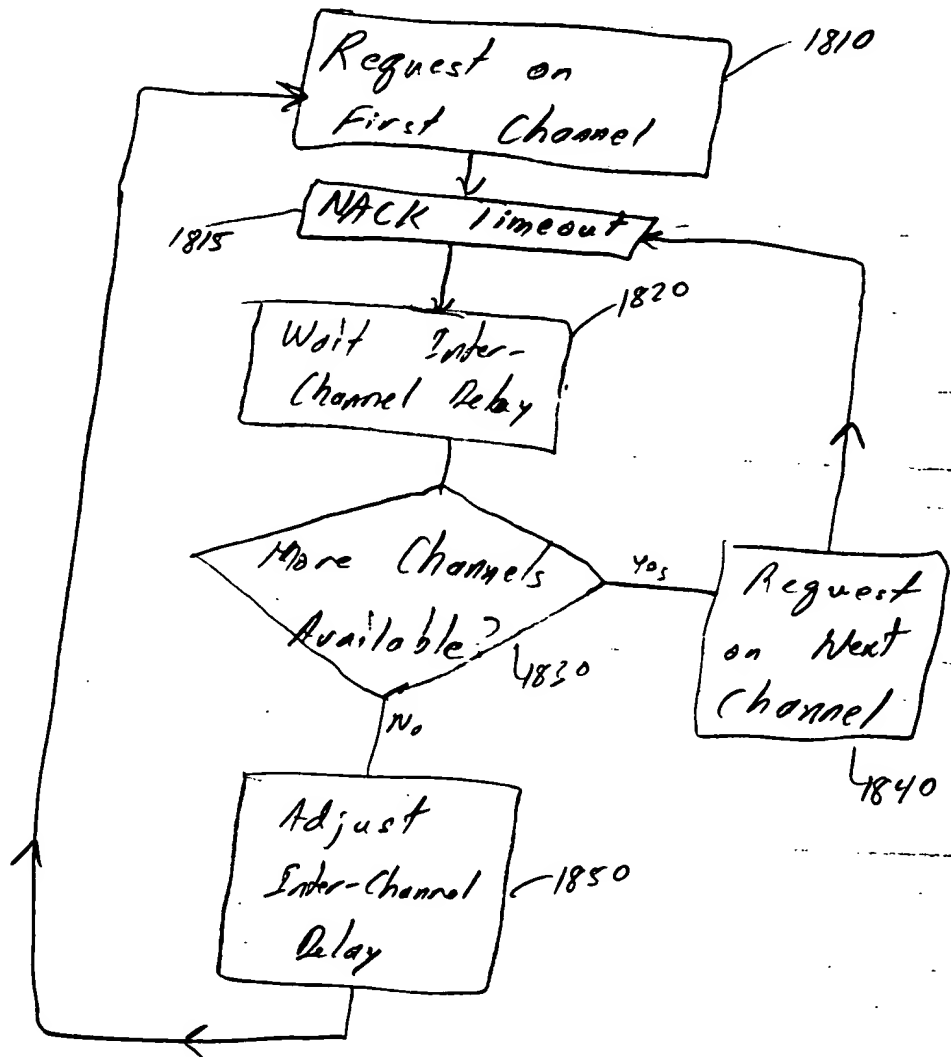 Request on
First Channel
1810
NACK Timeout
1815
1820
Wait Inter-
Channel Delay
More Channels
Available?
1830
Yes
Request
on Next
Channel
1840
No
Adjust
Inter-Channel
Delay
1850